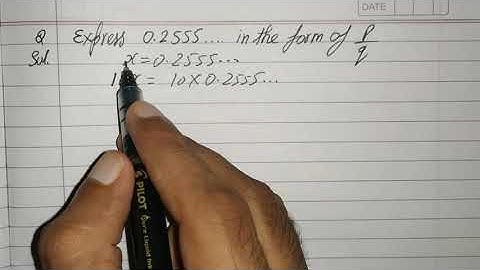 DATE
Q Express 0.2555.... in the form of p/q
Sol. x = 0.2555...
10x = 10 x 0.2555...
PILOT